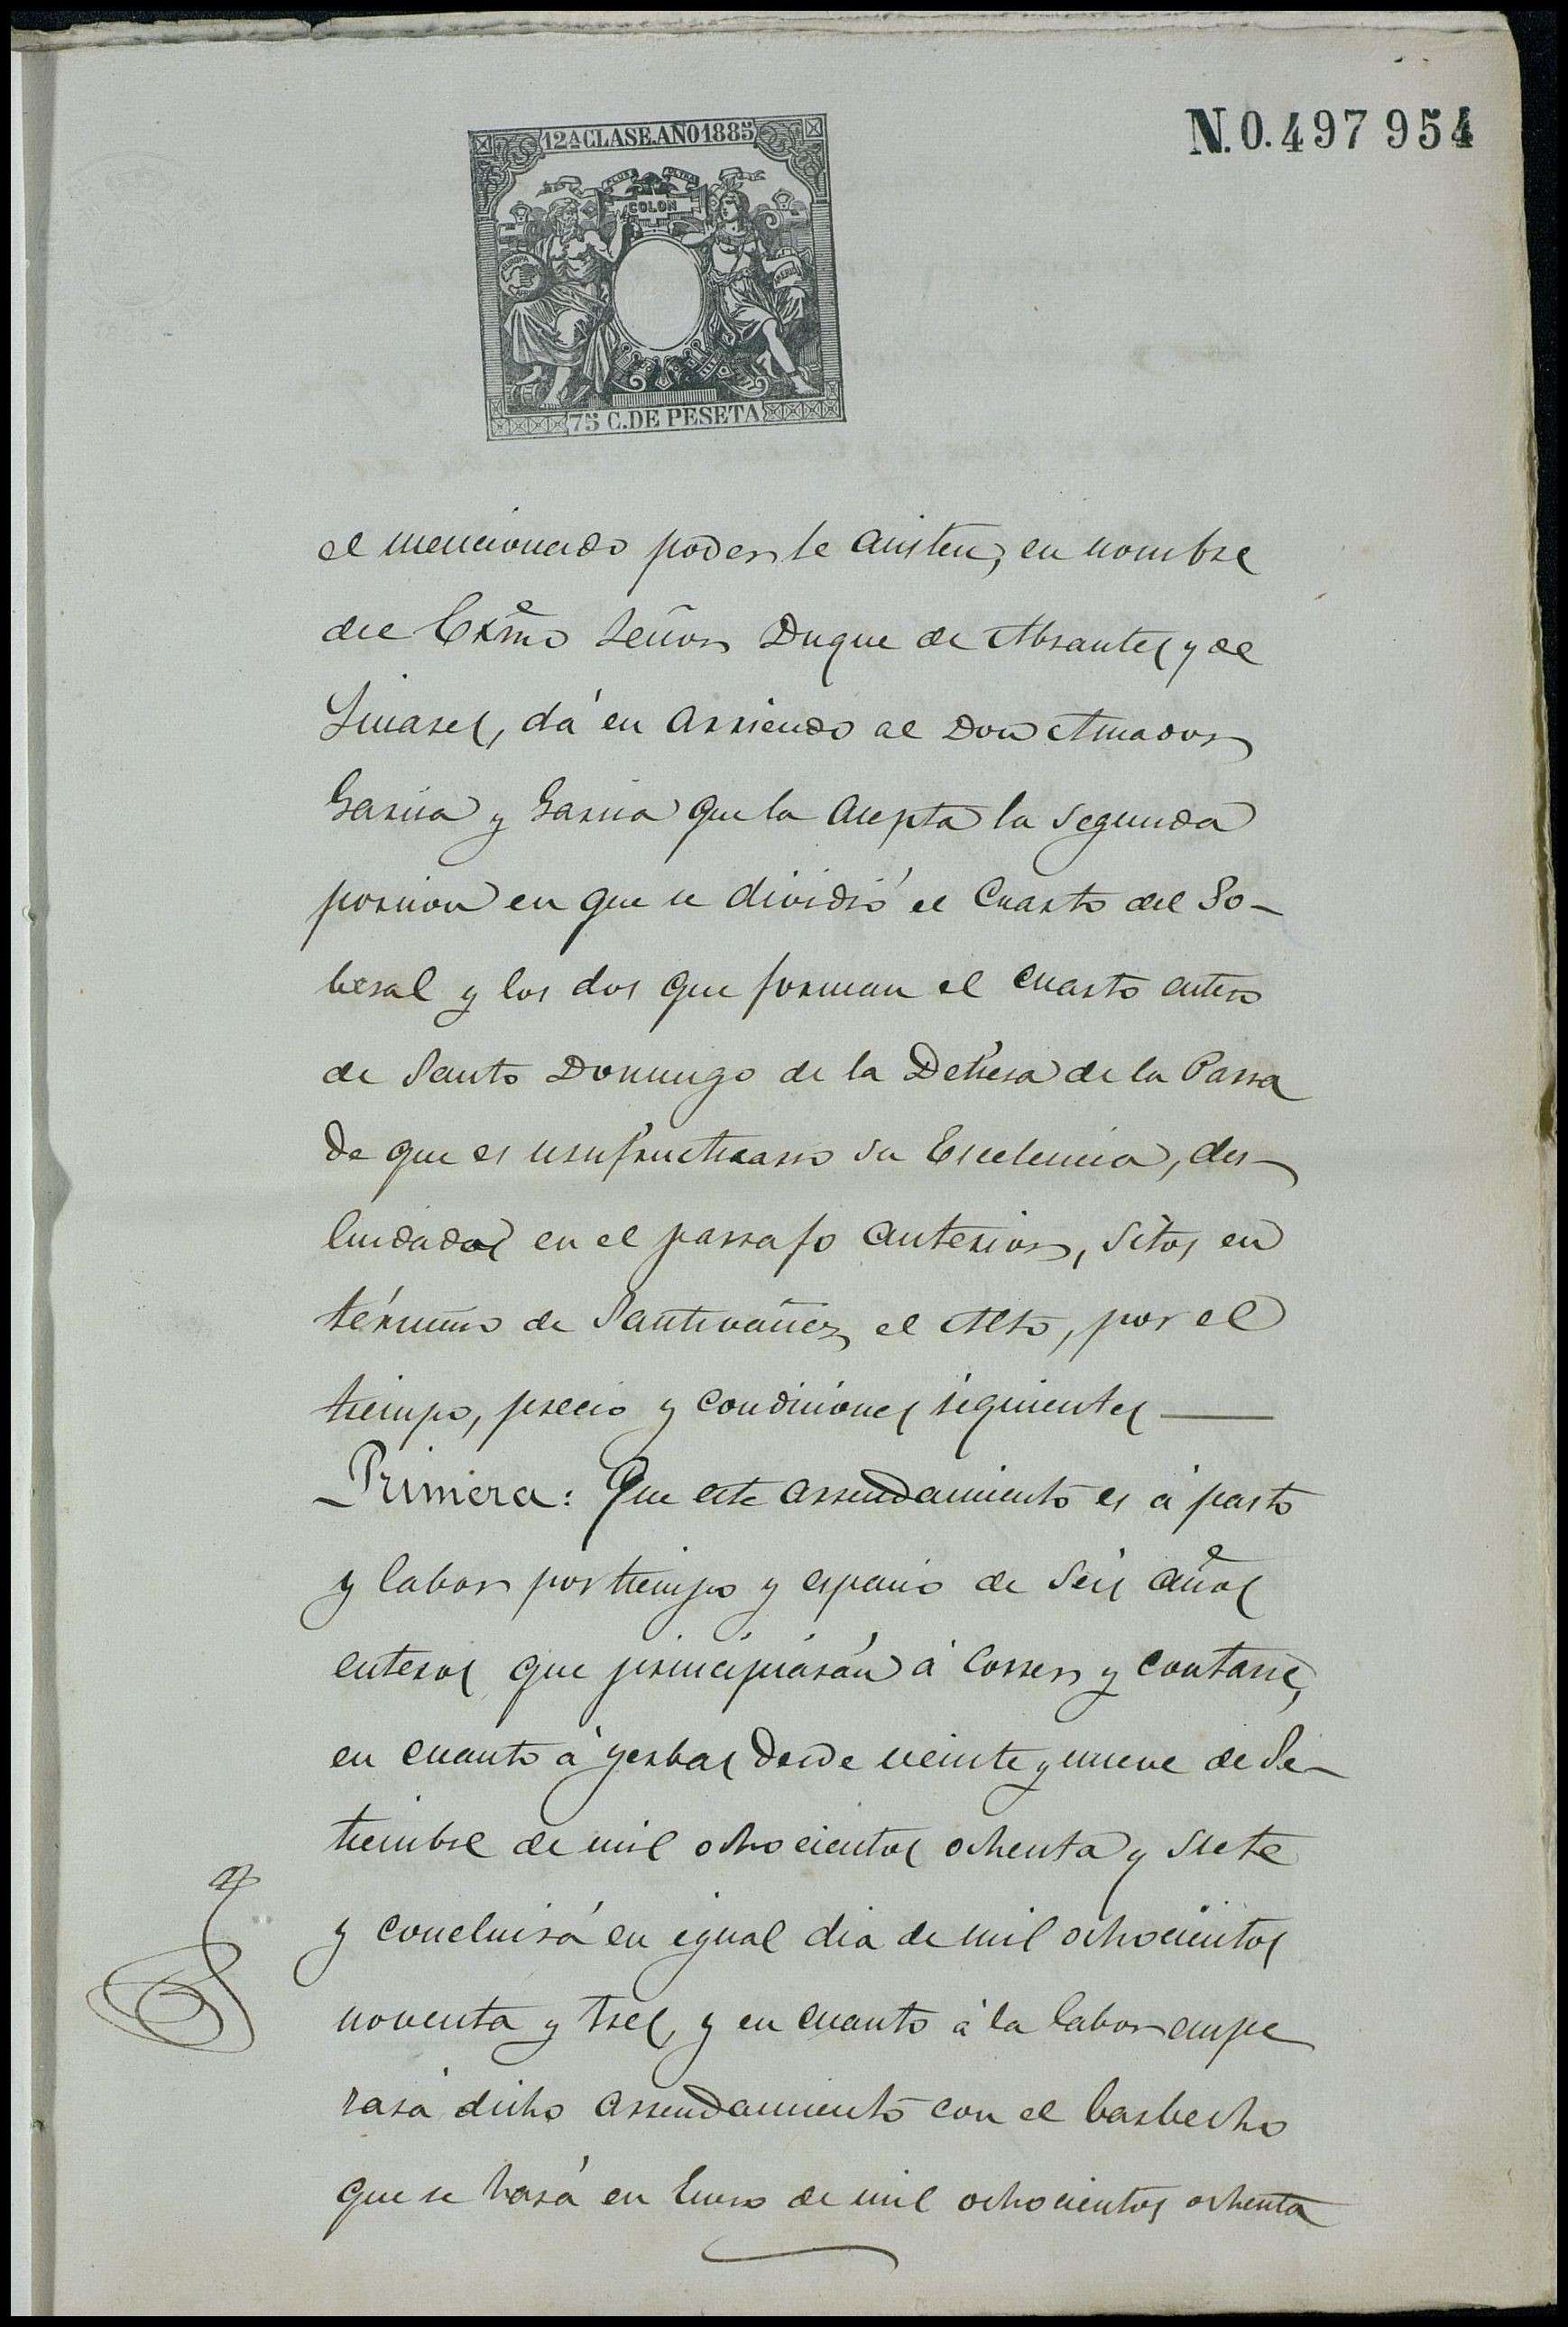 N.0.497 954
12ª CLASE. AÑO 1885
PLUS ULTRA
COLON
EUROPA
75 C. DE PESETA
el mencionado poder le asisten, en nombre
del Excmo Señor Duque de Abrantes y de
Linares, dá en arriendo al Don Amador
Garcia y Garcia que la acepta la segunda
porcion en que se dividió el Cuarto del So-
beral y los dos que forman el cuarto entero
de Santo Domingo de la Dehesa de la Parra
de que es usufructuario su Escelencia, des-
lindados en el parrafo anterior, sitos en
término de Santivañez el Alto, por el
tiempo, precio y condiciones siguientes —
Primera: Que este arrendamiento es á pasto
y labor por tiempo y espacio de seis años
enteros que principiarán á correr y contarse,
en cuanto á yerbas desde veinte y nueve de Se-
tiembre de mil ochocientos ochenta y siete
y concluirá en igual dia de mil ochocientos
noventa y tres, y en cuanto á la labor empe
zará dicho arrendamiento con el barbecho
que se hará en Enero de mil ochocientos ochenta